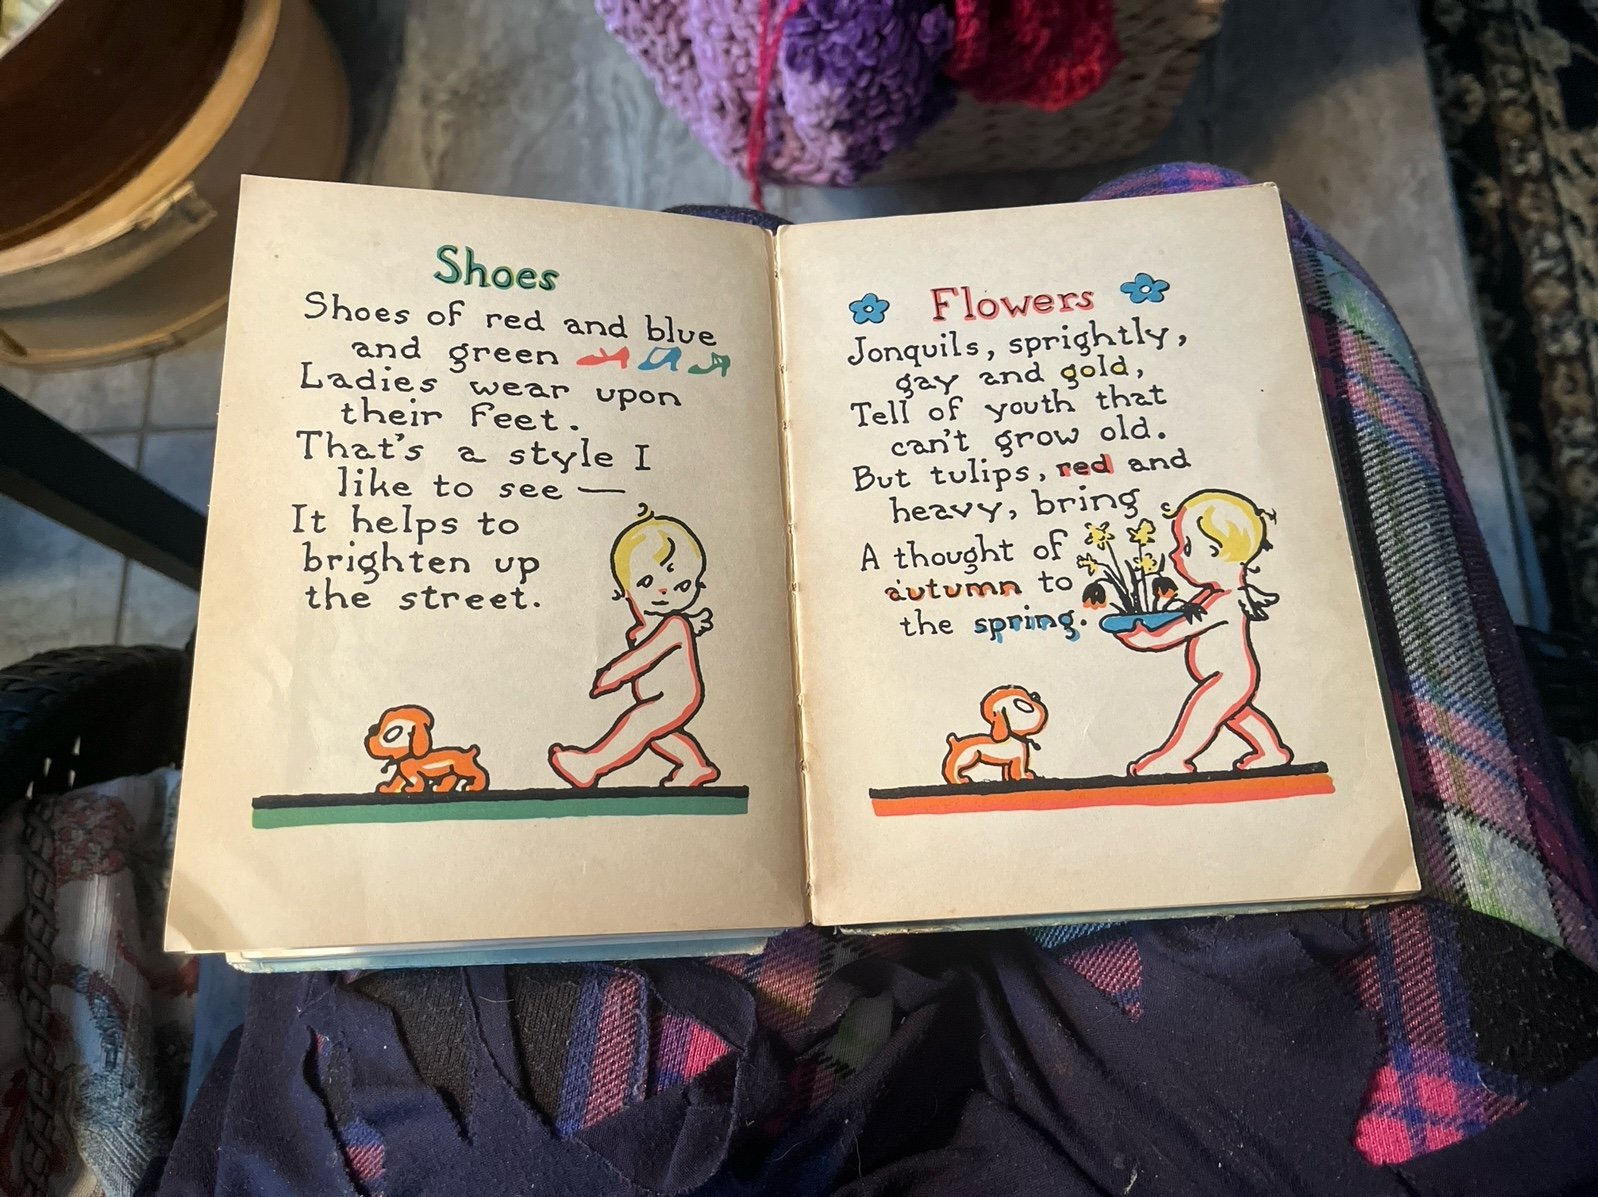 Shoes
Shoes of red and blue
and green
Ladies wear upon
their feet.
That's a style I
like to see —
It helps to
brighten up
the street.
Flowers
Jonquils, sprightly,
gay and gold,
Tell of youth that
can't grow old.
But tulips, red and
heavy, bring
A thought of
autumn to
the spring.